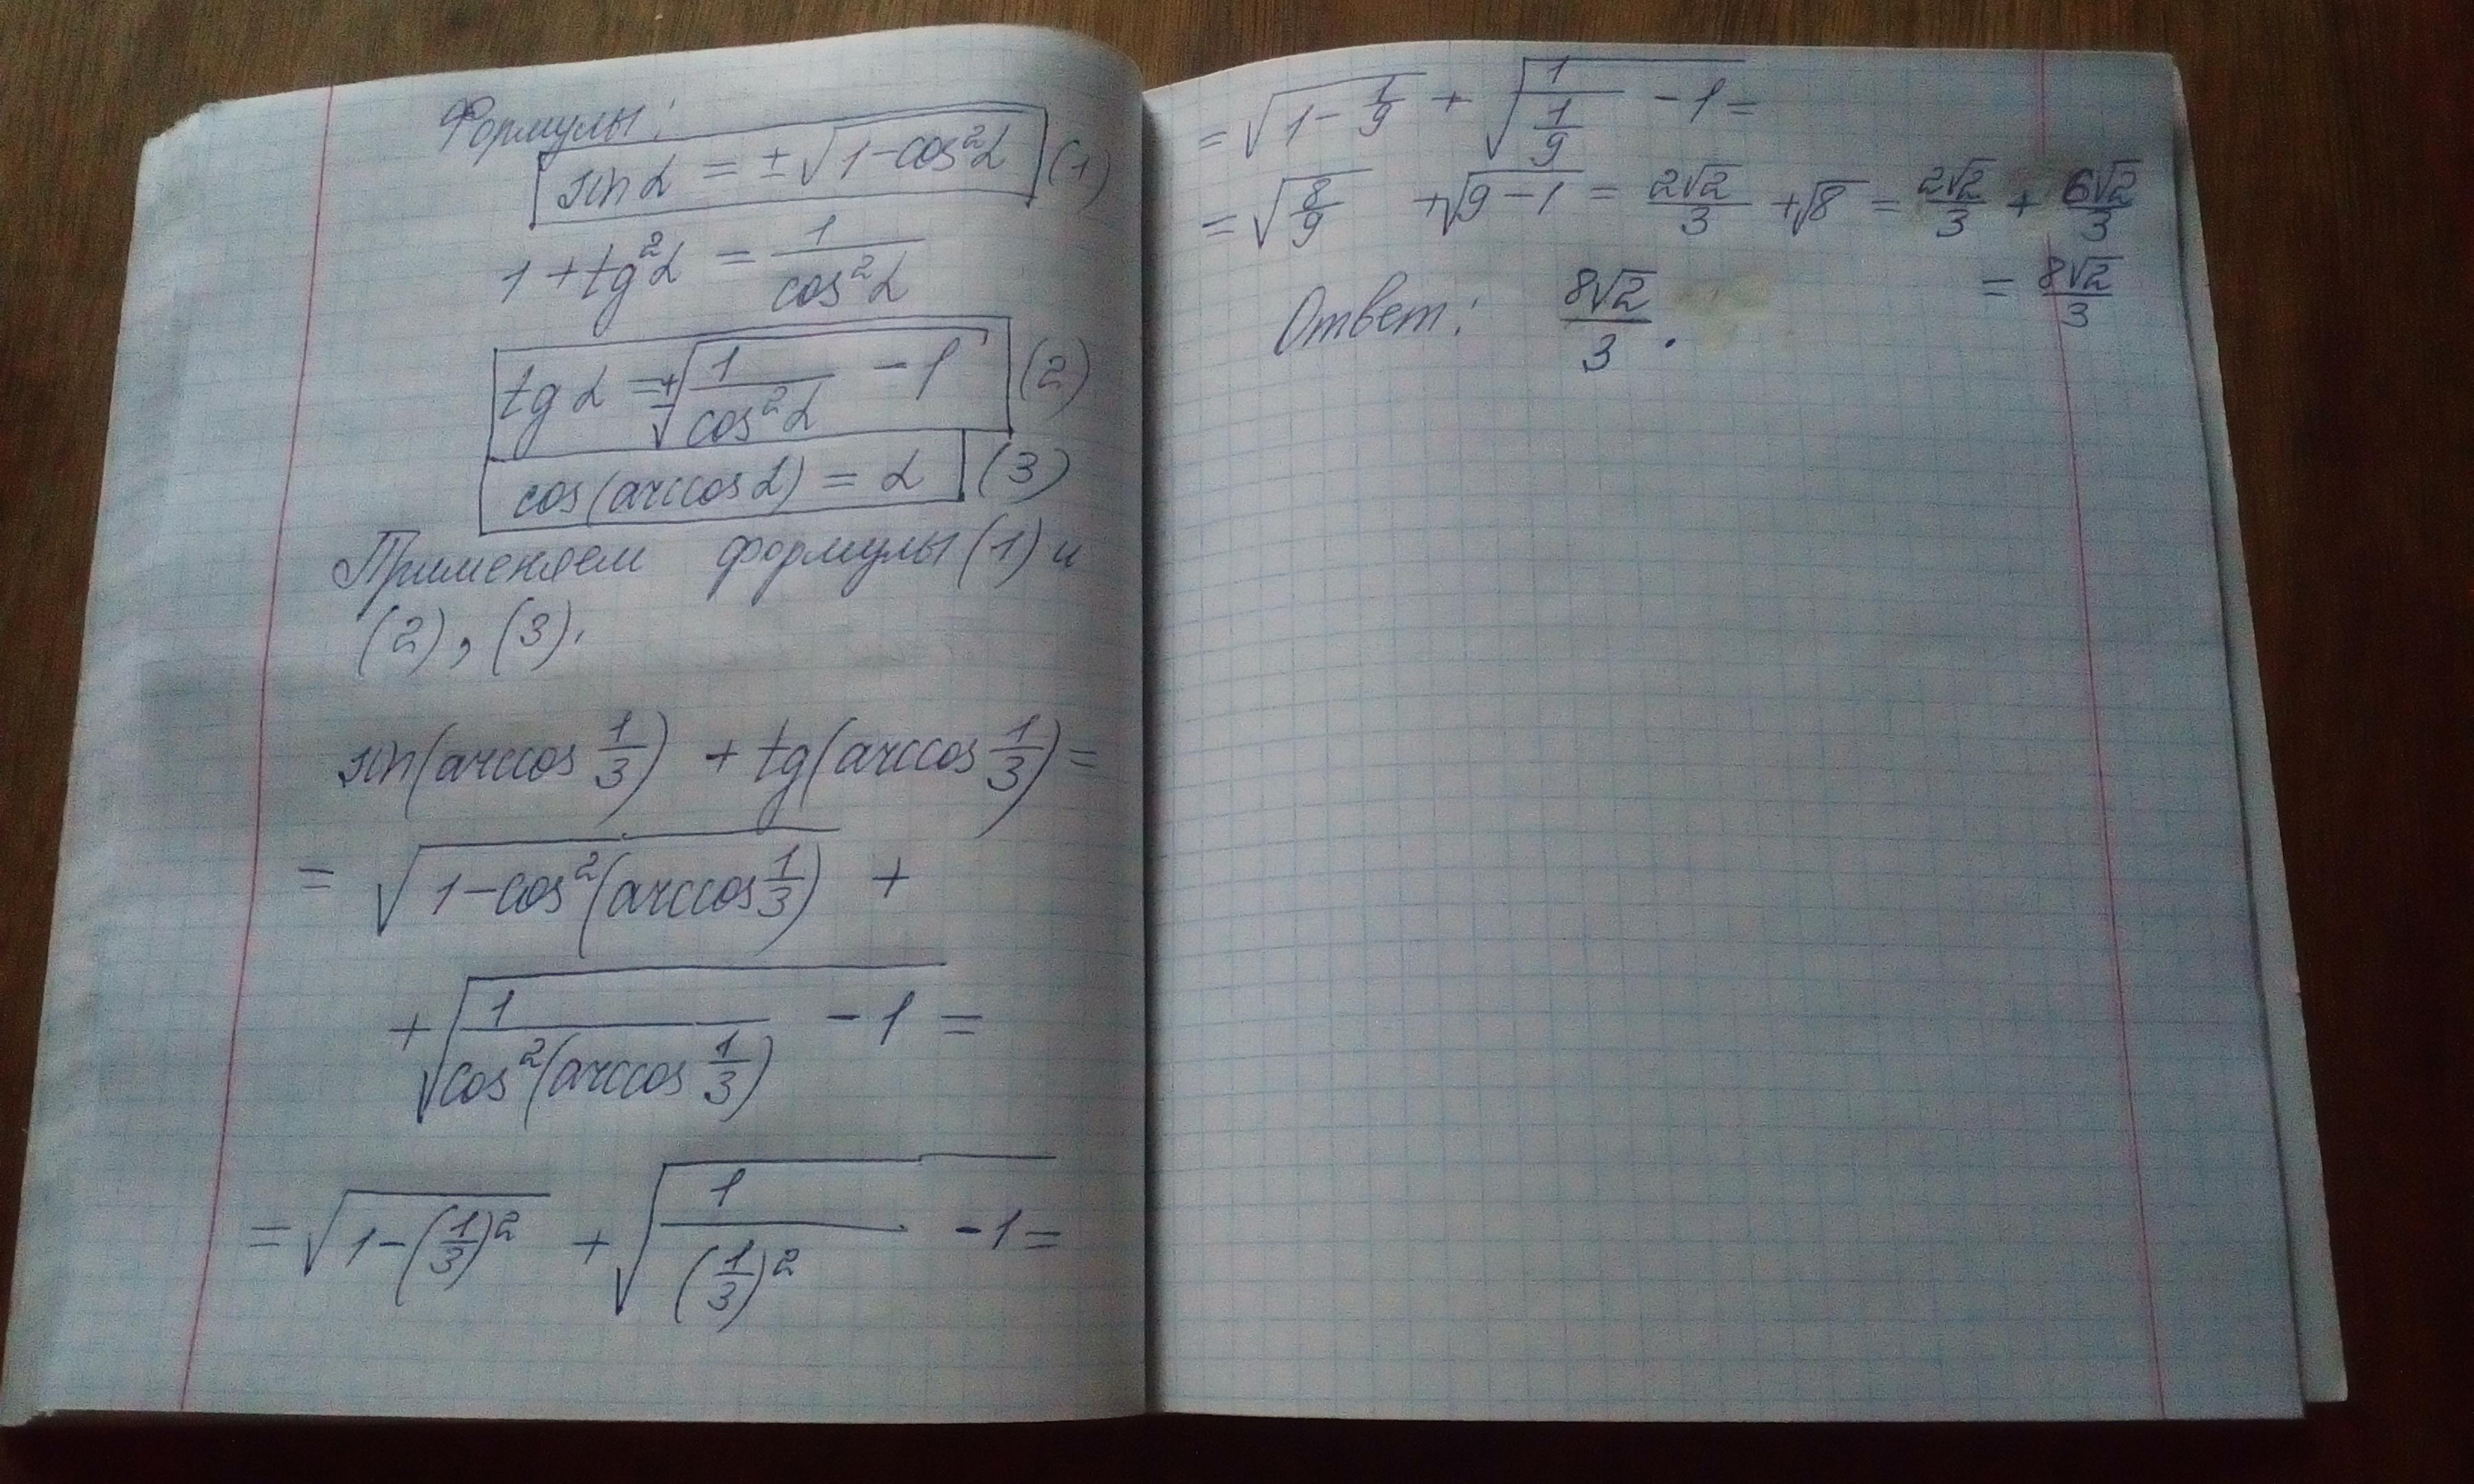 Формулы:
sin α = ±√(1-cos²α) (1)
1 + tg²α = 1/cos²α
tg α = ±√(1/cos²α - 1) (2)
cos(arccos α) = α (3)
Применяем формулы (1) и
(2), (3).
sin(arccos 1/3) + tg(arccos 1/3) =
= √(1-cos²(arccos 1/3)) +
+ √(1/cos²(arccos 1/3) - 1) =
= √(1-(1/3)²) + √(1/(1/3)² - 1) =
= √(1 - 1/9) + √(1/(1/9) - 1) =
= √(8/9) + √(9-1) = 2√2/3 + √8 = 2√2/3 + 6√2/3
= 8√2/3
Ответ: 8√2/3.